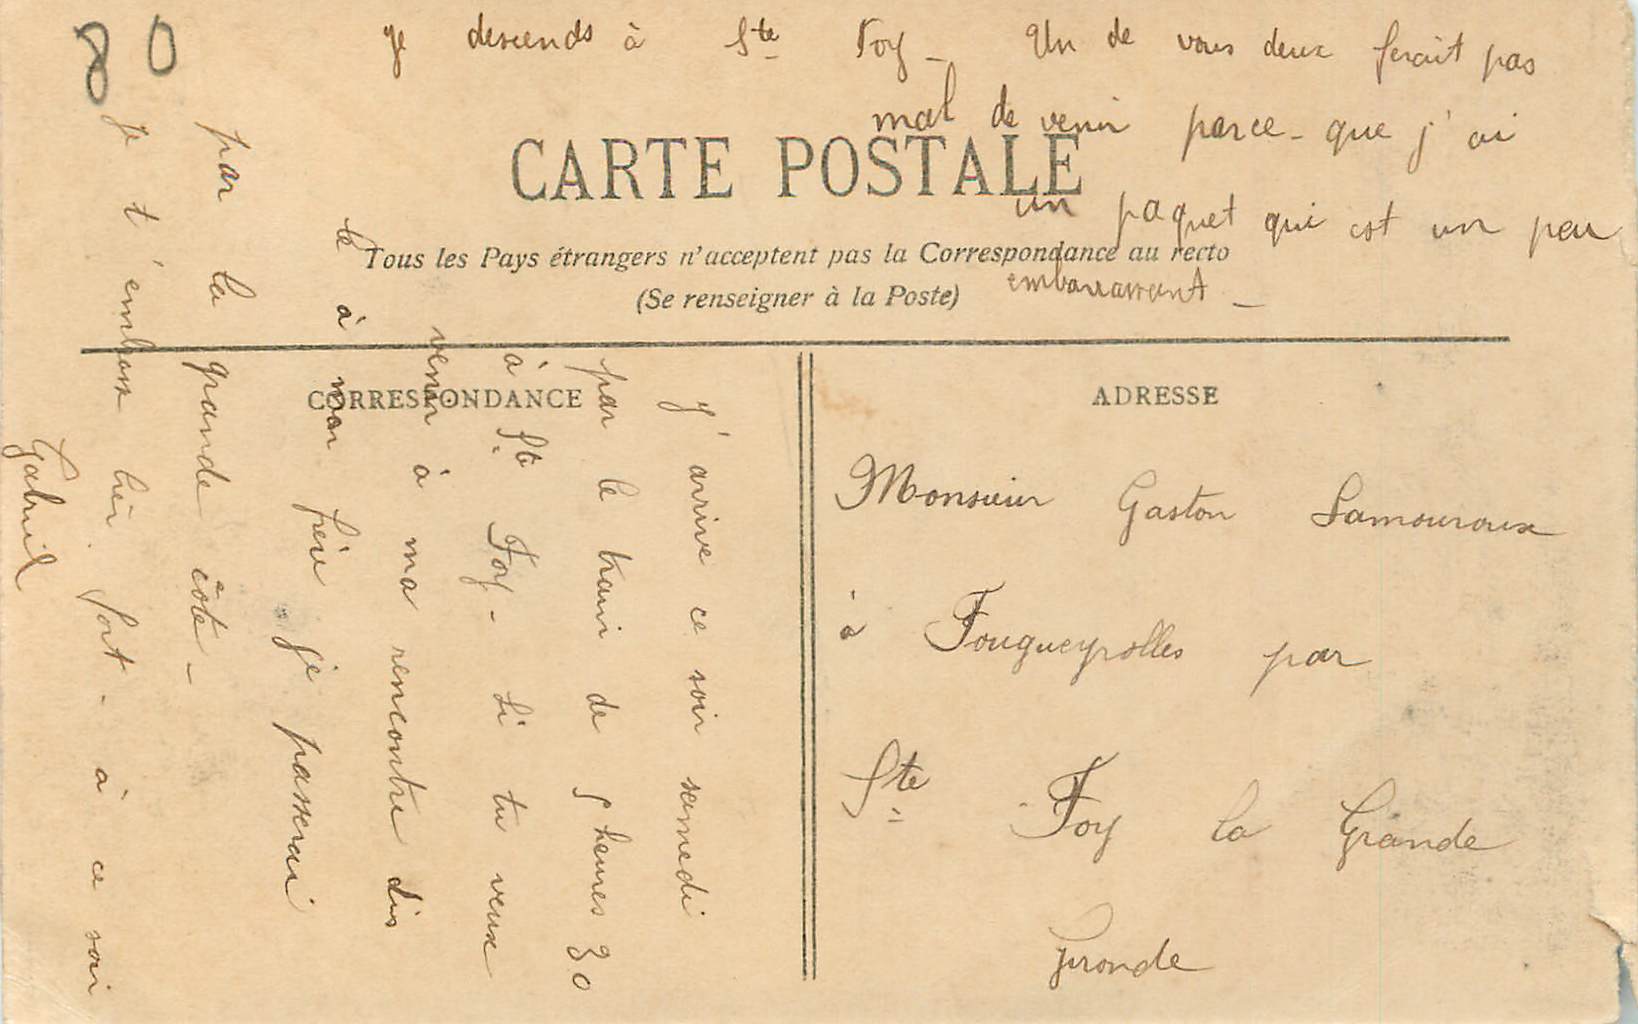 je descends à Ste Foy - Un de vous deux ferait pas
mal de venir parce - que j'ai
un paquet qui est un peu
embarrassant -
CARTE POSTALE
Tous les Pays étrangers n'acceptent pas la Correspondance au recto
(Se renseigner à la Poste)
CORRESPONDANCE
j'arrive ce soir samedi
par le train de 5 heures 30
à Ste Foy - Si tu veux
venir à ma rencontre dis
le à mon frère je passerai
par la grande côte -
Je t'embrasse bien fort - à ce soir
Gabriel
80
ADRESSE
Monsieur Gaston Lamouroux
à Fougueyrolles par
Ste Foy la Grande
Gironde